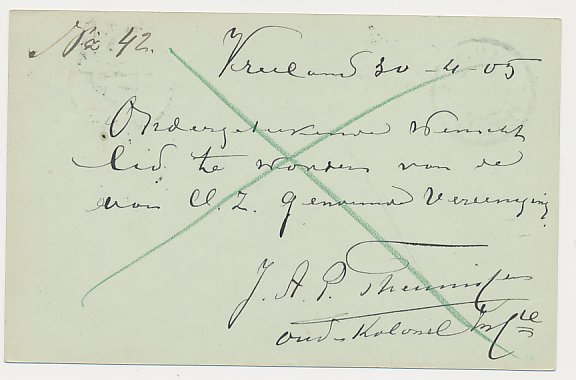 No 42.
Vreeland 30-4-05
Ondergetekende wenscht
lid te worden van de
aan U.Z. genoemde Vereeniging
J. A. P. Theunissen
oud-Kolonel Infie